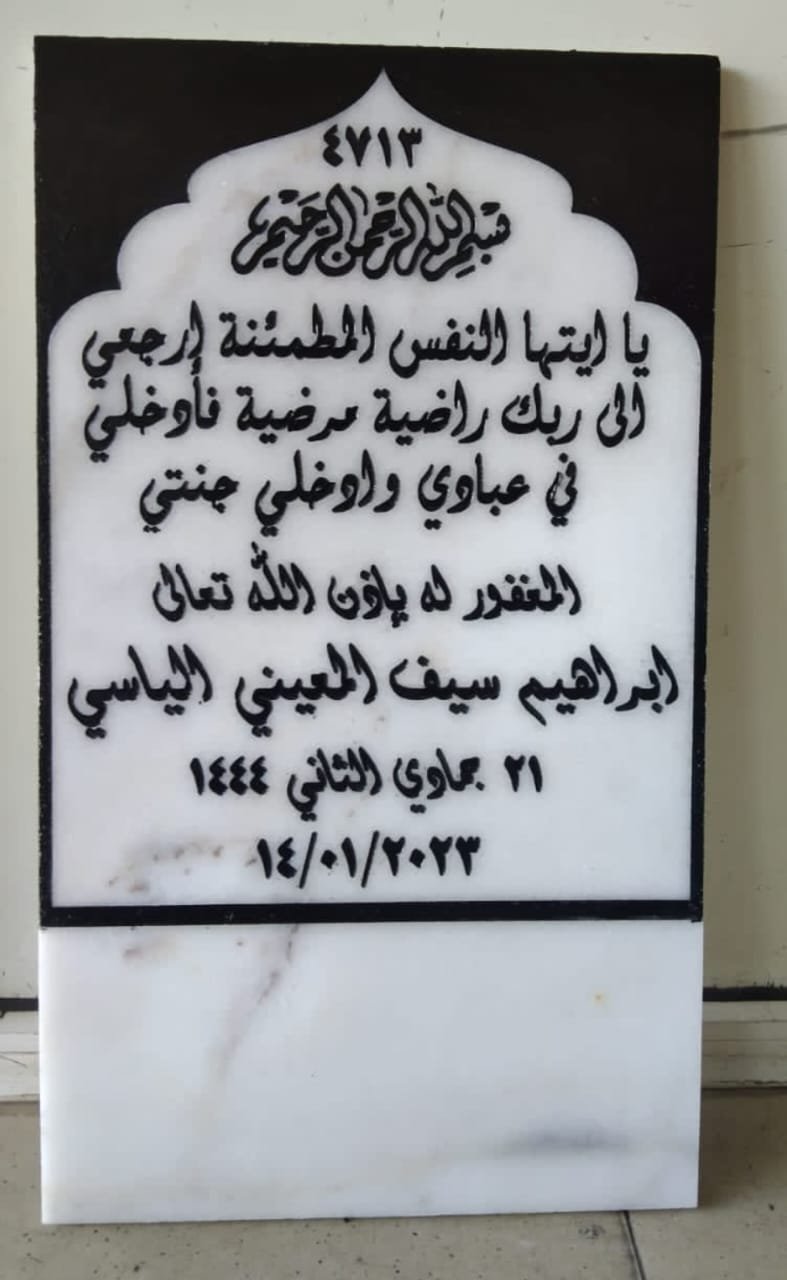 ٤٧١٣
بسم الله الرحمن الرحيم
يا ايتها النفس المطمئنة إرجعي
الى ربك راضية مرضية فأدخلي
في عبادي وادخلي جنتي
المغفور له بإذن الله تعالى
ابراهيم سيف المعيني الياسي
٢١ جمادي الثاني ١٤٤٤
١٤/٠١/٢٠٢٣